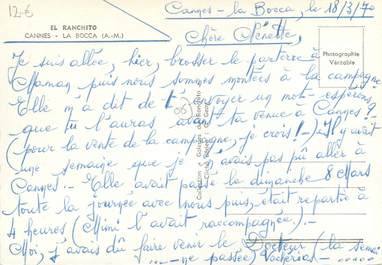 12€
EL RANCHITO
CANNES - LA BOCCA (A.-M.)
Cannes - la Bocca, le 18/3/70
Chère Ninette,
Photographie
Véritable
Je suis allée, hier, brosser le parterre à
Maman puis nous sommes montées à la campagne
Elle m'a dit de t'envoyer un mot espérant
que tu l'auras avant ta venue à Cannes
(pour la vente de la campagne, je crois !) Il y avait
une semaine que je n'avais pas pû aller à
Cannes - Elle avait passé le dimanche 8 Mars
toute la journée avec nous puis, était repartie à
4 heures (Mimi l'avait raccompagnée). -
Moi, j'avais dû faire venir le Docteur (la
ne passée)